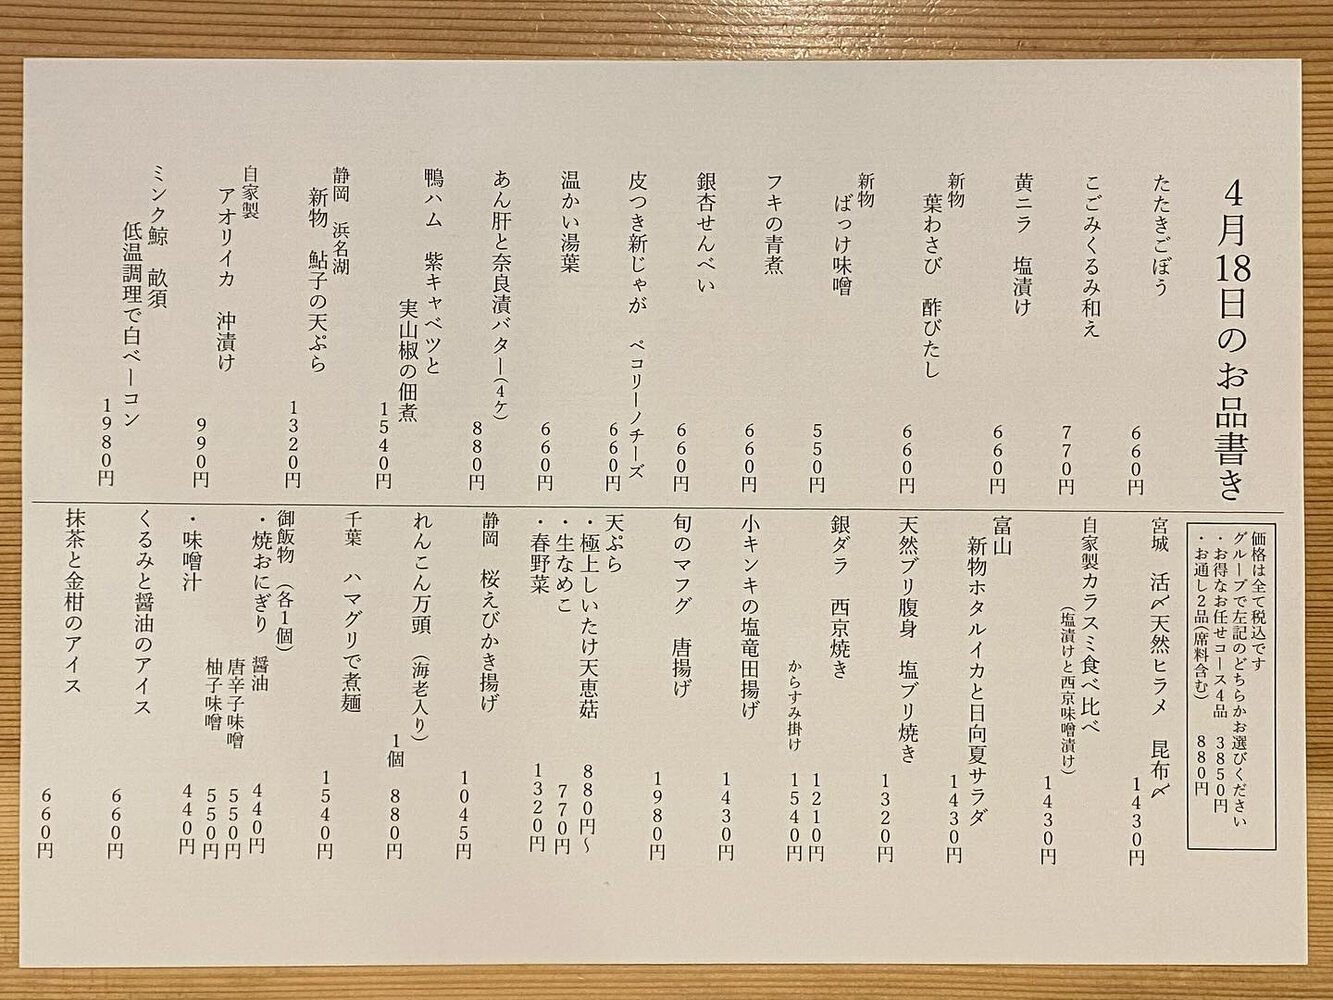 4月18日のお品書き
たたきごぼう
660円
こごみくるみ和え
770円
黄ニラ 塩漬け
660円
新物
葉わさび 酢びたし
660円
新物
ばっけ味噌
550円
フキの青煮
660円
銀杏せんべい
660円
皮つき新じゃが ペコリーノチーズ
660円
温かい湯葉
660円
あん肝と奈良漬バター(4ケ)
880円
鴨ハム 紫キャベツと
実山椒の佃煮
1540円
静岡 浜名湖
新物 鮎子の天ぷら
1320円
自家製
アオリイカ 沖漬け
990円
ミンク鯨 畝須
低温調理で白ベーコン
1980円
価格は全て税込です
グループで左記のどちらかお選びください
・お得なお任せコース4品 3850円
・お通し2品(席料含む) 880円
宮城 活〆天然ヒラメ 昆布〆
1430円
自家製カラスミ食べ比べ
(塩漬けと西京味噌漬け)
1430円
富山
新物ホタルイカと日向夏サラダ
1430円
天然ブリ腹身 塩ブリ焼き
1320円
銀ダラ 西京焼き
1210円
からすみ掛け 1540円
小キンキの塩竜田揚げ
1430円
旬のマフグ 唐揚げ
1980円
天ぷら
・極上しいたけ天恵菇 880円〜
・生なめこ 770円
・春野菜 1320円
静岡 桜えびかき揚げ
1045円
れんこん万頭 (海老入り)
1個 880円
千葉 ハマグリで煮麺
1540円
御飯物 (各1個)
・焼おにぎり 醤油 440円
唐辛子味噌 550円
柚子味噌 550円
・味噌汁 440円
くるみと醤油のアイス
660円
抹茶と金柑のアイス
660円